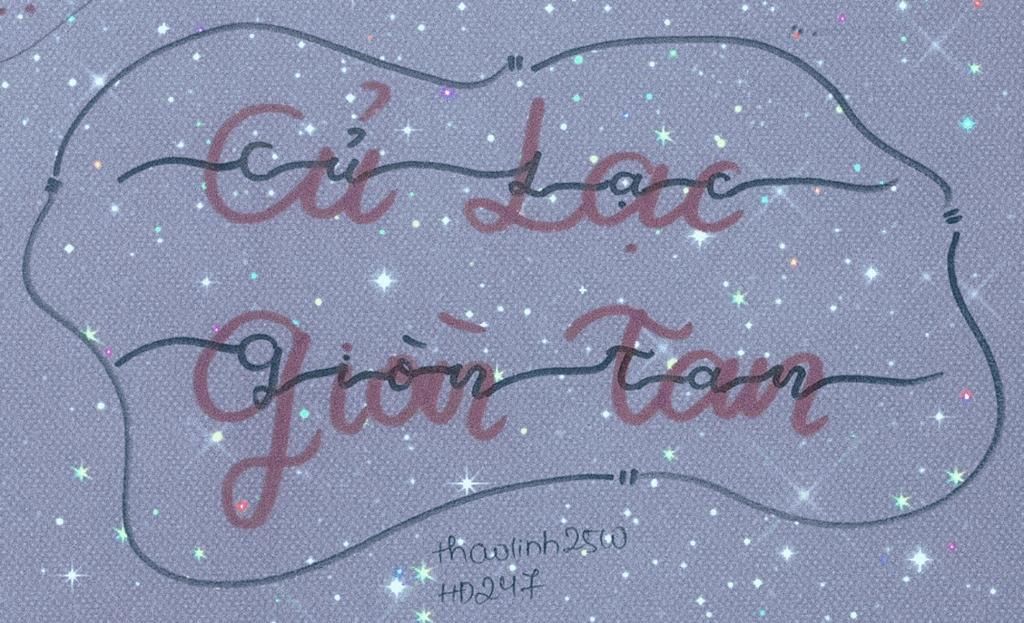 Củ Lạc
Giòn Tan
thawlinh25w
HD247